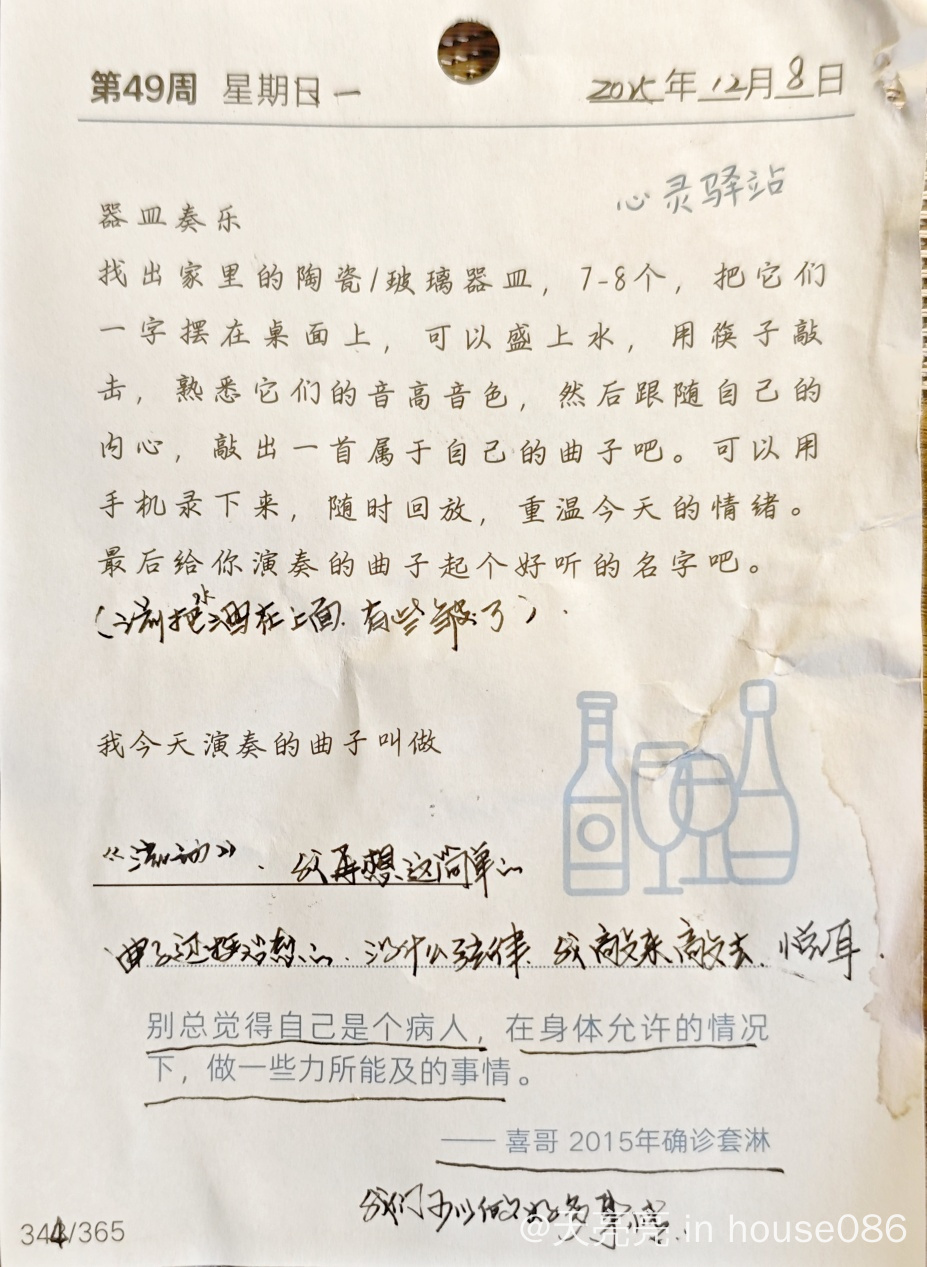 第49周 星期日一 2025年12月8日
心灵驿站
器皿奏乐
找出家里的陶瓷/玻璃器皿，7-8个，把它们
一字摆在桌面上，可以盛上水，用筷子敲
击，熟悉它们的音高音色，然后跟随自己的
内心，敲出一首属于自己的曲子吧。可以用
手机录下来，随时回放，重温今天的情绪。
最后给你演奏的曲子起个好听的名字吧。
把水洒在上面. 有些皱了）.
我今天演奏的曲子叫做
《流动》. 我再想这简单的
曲子还挺治愈的. 没什么旋律. 我敲来敲去. 悦耳.
别总觉得自己是个病人，在身体允许的情况
下，做一些力所能及的事情。
—— 喜哥 2015年确诊套淋
我们可以做很多事情.
344/365
@天亮亮 in house086